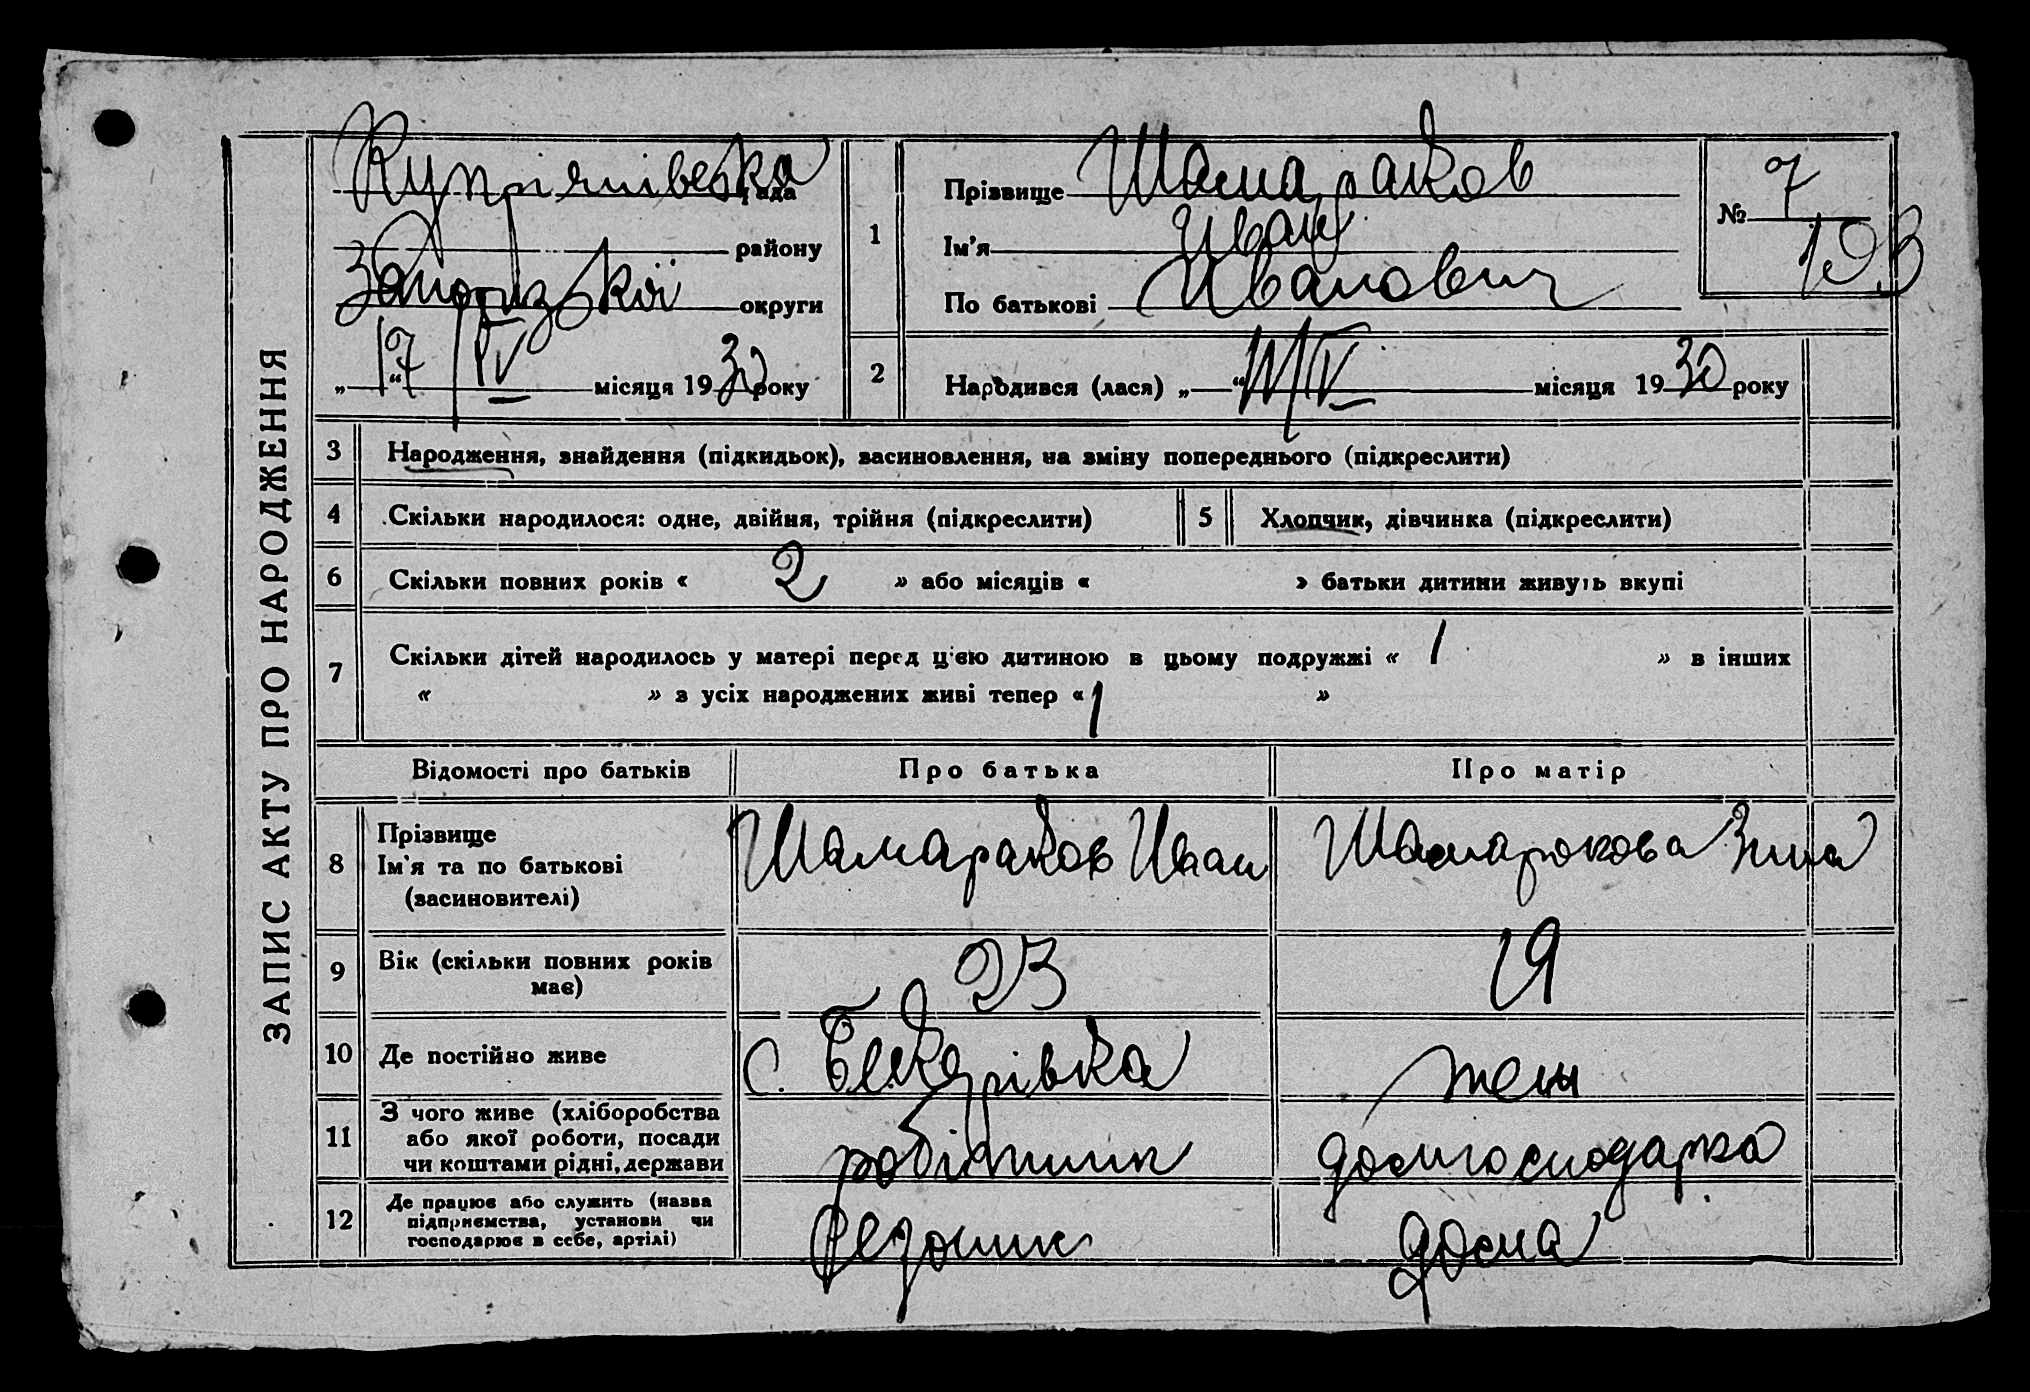 ЗАПИС АКТУ ПРО НАРОДЖЕННЯ
Купріянівська рада
району
Запорізької округи
„ 17 “ IV місяця 1930 року
1 Прізвище Шамараков
Ім'я Иван
По батькові Иванович
№ 7
193
2 Народився (лася) „ “ IV місяця 1930 року
3 Народження, знайдення (підкидьок), засиновлення, на зміну попереднього (підкреслити)
4 Скільки народилося: одне, двійня, трійня (підкреслити) 5 Хлопчик, дівчинка (підкреслити)
6 Скільки повних років « 2 » або місяців « » батьки дитини живуть вкупі
7 Скільки дітей народилось у матері перед цією дитиною в цьому подружжі « 1 » в інших
« » з усіх народжених живі тепер « 1 »
Відомості про батьків Про батька Про матір
8 Прізвище
Ім'я та по батькові
(засиновителі)
Шамараков Иван Шамаракова Зина
9 Вік (скільки повних років
має)
23 19
10 Де постійно живе с. Бекарівка теж
11 З чого живе (хліборобства
або якої роботи, посади
чи коштами рідні, держави
робітник домгосподарка
12 Де працює або служить (назва
підприємства, установи чи
господарює в себе, артілі)
дома